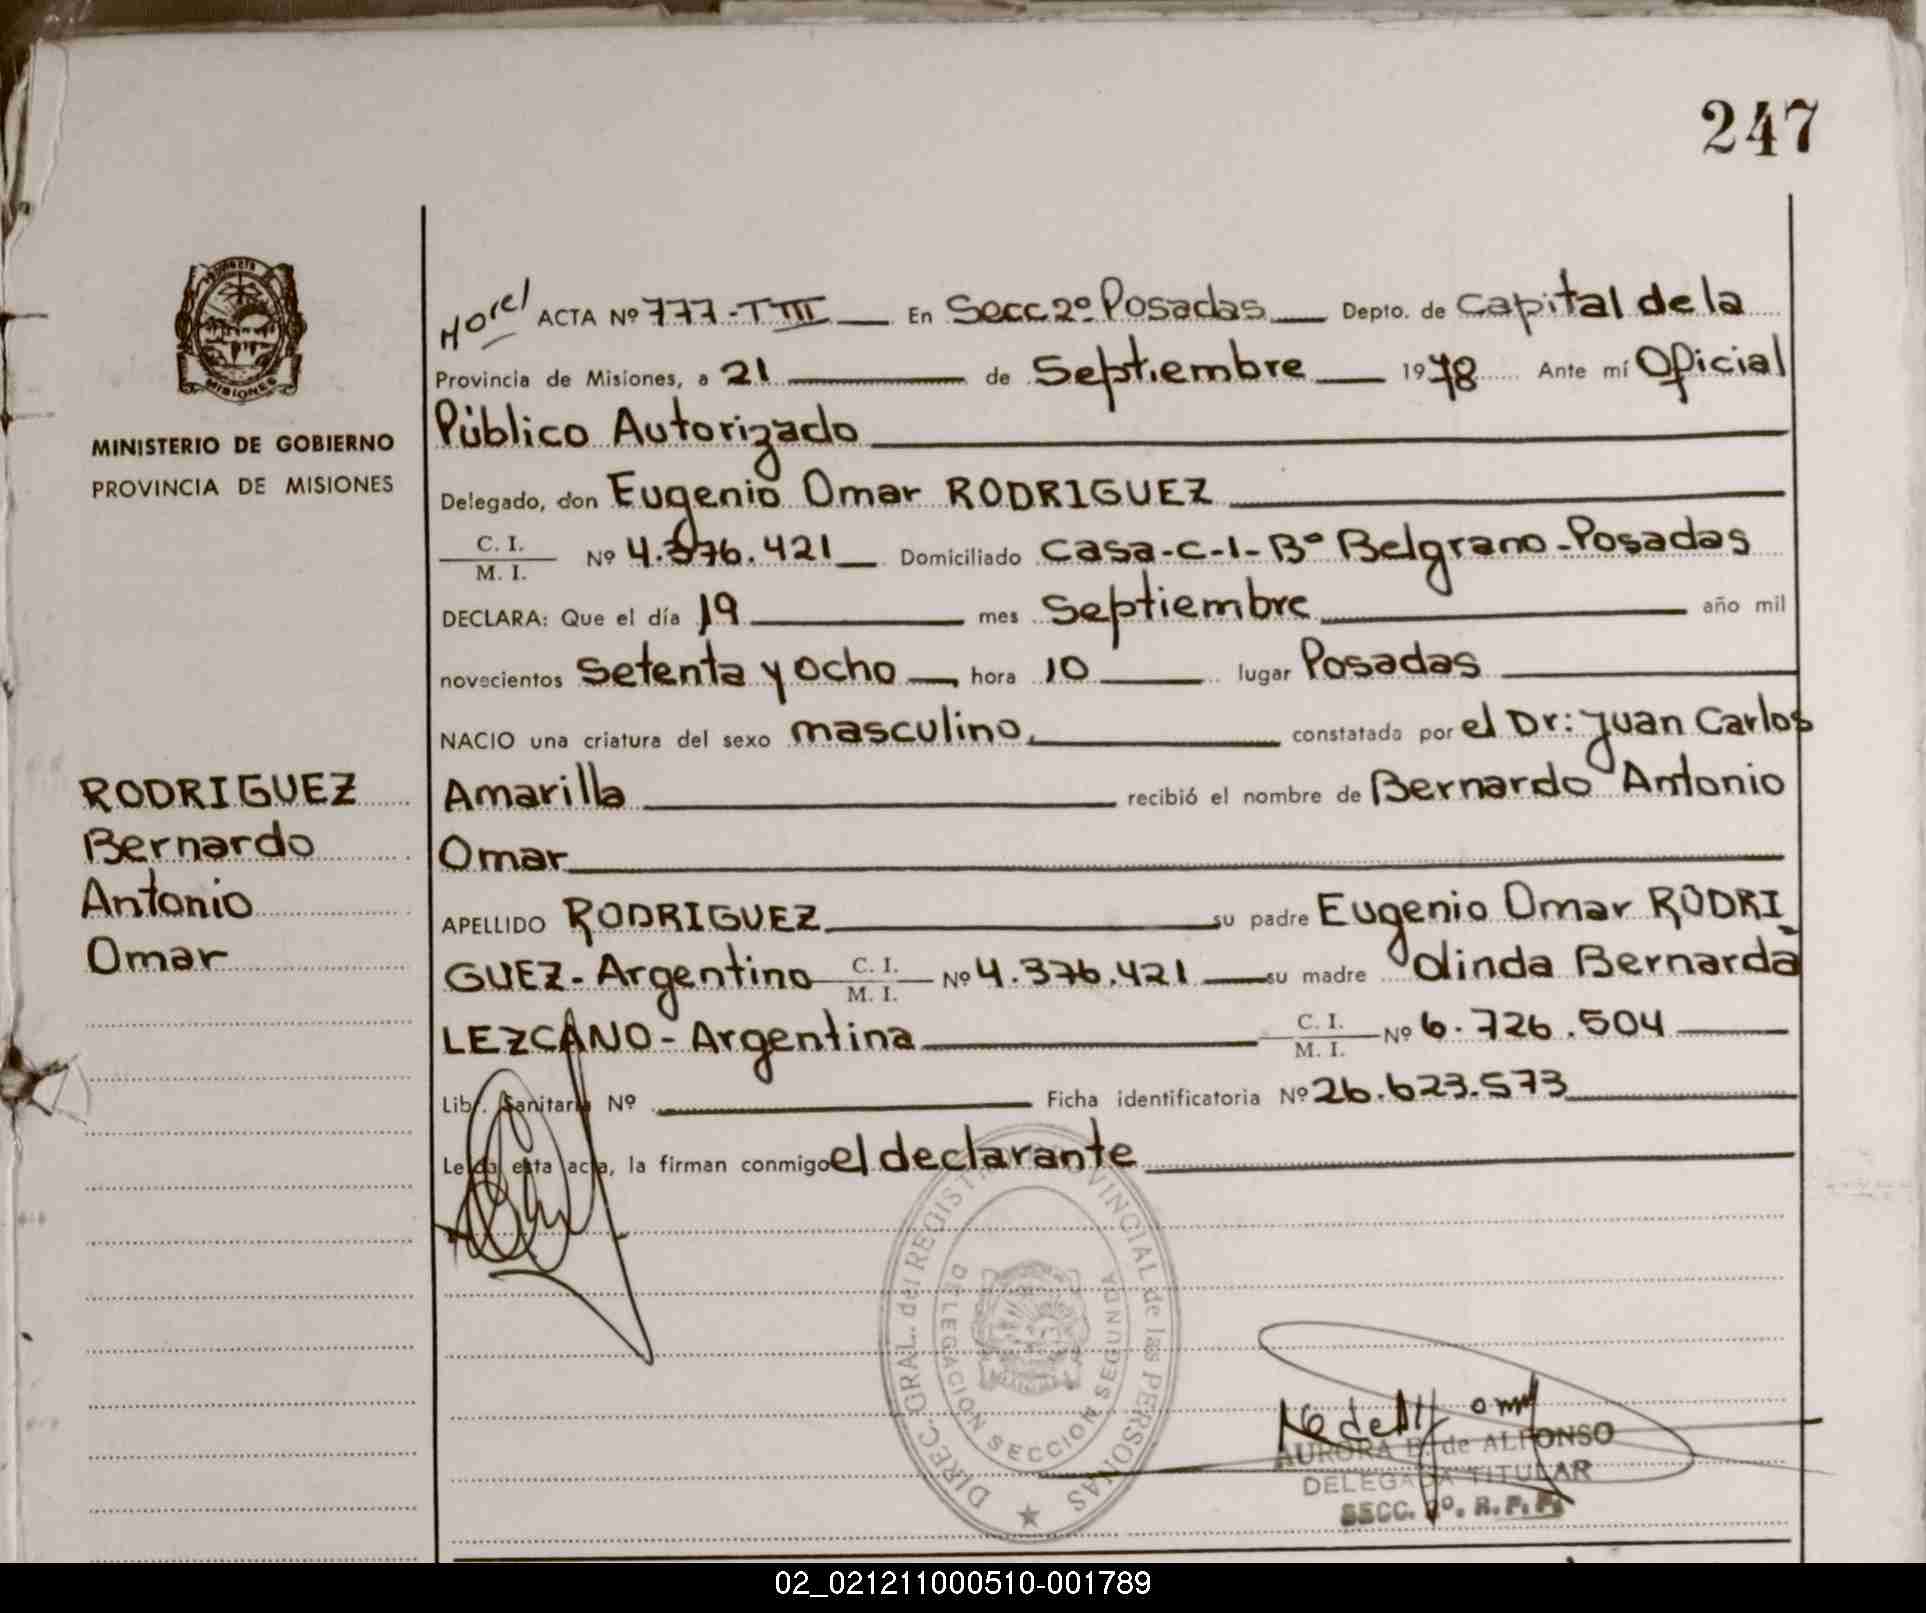 247
ACTA Nº 777-TIII En Secc 2º Posadas Depto. de Capital de la
Provincia de Misiones, a 21 de Septiembre 1978 Ante mí Oficial
Público Autorizado
MINISTERIO DE GOBIERNO
PROVINCIA DE MISIONES
Delegado, don Eugenio Omar RODRIGUEZ
C. I.
M. I. Nº 4.376.421 Domiciliado Casa-C-1-Bº Belgrano-Posadas
DECLARA: Que el día 19 mes Septiembre año mil
novecientos Setenta y ocho hora 10 lugar Posadas
NACIO una criatura del sexo masculino, constatada por el Dr: Juan Carlos
Amarilla recibió el nombre de Bernardo Antonio
Omar
RODRIGUEZ
Bernardo
Antonio
Omar
APELLIDO RODRIGUEZ su padre Eugenio Omar RODRI
GUEZ-Argentino C. I. M. I. Nº 4.376.421 su madre Olinda Bernarda
LEZCANO-Argentina C. I. M. I. Nº 6.726.504
Libr. Sanitaria Nº Ficha identificatoria Nº 26.623.573
Leida esta acta, la firman conmigo el declarante
DIREC. GRAL. del REGISTRO PROVINCIAL de las PERSONAS
DELEGACION SECCION SEGUNDA
MISIONES
AURORA B. de ALFONSO
DELEGADA TITULAR
SECC. 2º. R. P. P.
02_021211000510-001789